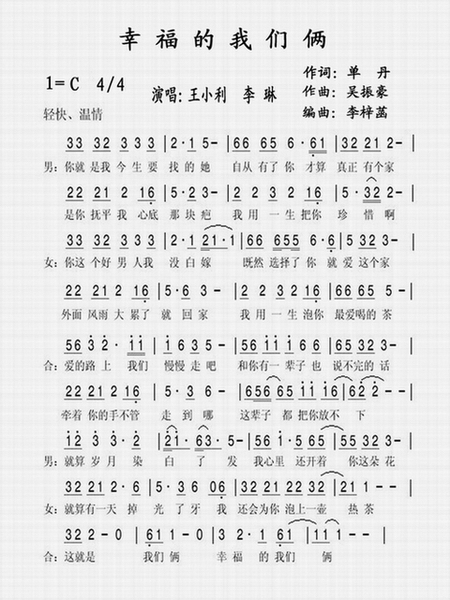 幸福的我们俩
1=C 4/4
演唱:王小利 李琳
作词:单 丹
作曲:吴振豪
编曲:李梓菡
轻快、温情
33 32 333 3 | 2·15- | 66 65 6·61 | 32 21 3- |
男:你就是我今生要找的她 自从有了你才算真正有个家
22 21 2 16 | 5·23- | 2 2 3 2 16 | 5·32 2- |
是你抚平我心底那块疤 我用一生把你珍惜啊
33 32 333 3 | 2·1 21·1 | 66 655 6·6 | 5 32 3- |
女:你这个好男人我没白嫁 既然选择了你就爱这个家
22 21 2 16 | 5·63- | 2 2 3 2 16 | 66 65 5- |
外面风雨大累了就回家 我用一生泡你最爱喝的茶
56 3 2·1 | 11 61 5- | 56 11 1 66 | 66 56 3- |
合:爱的路上我们慢慢走吧 和你有一辈子也说不完的话
22 21 2 16 | 5·36- | 656 65 11 16 | 2 21 1- |
牵着你的手不管走到哪 这辈子都把你放不下
12 3 3·2 | 21·63·5- | 56 50 55 53 | 22 35 3- |
男:就算岁月染白了发 我心里还开着你这朵花
32 21 2·6 | 5·3 6 06 | 32 21 22 32 | 21 1-- |
女:就算有一天掉光了牙我还会为你泡上一壶热茶
32 2-0 | 21 16 5- | 56 6- 61 | 31 11-- | 11--- |
合:这就是 我们俩 幸福的我们 俩